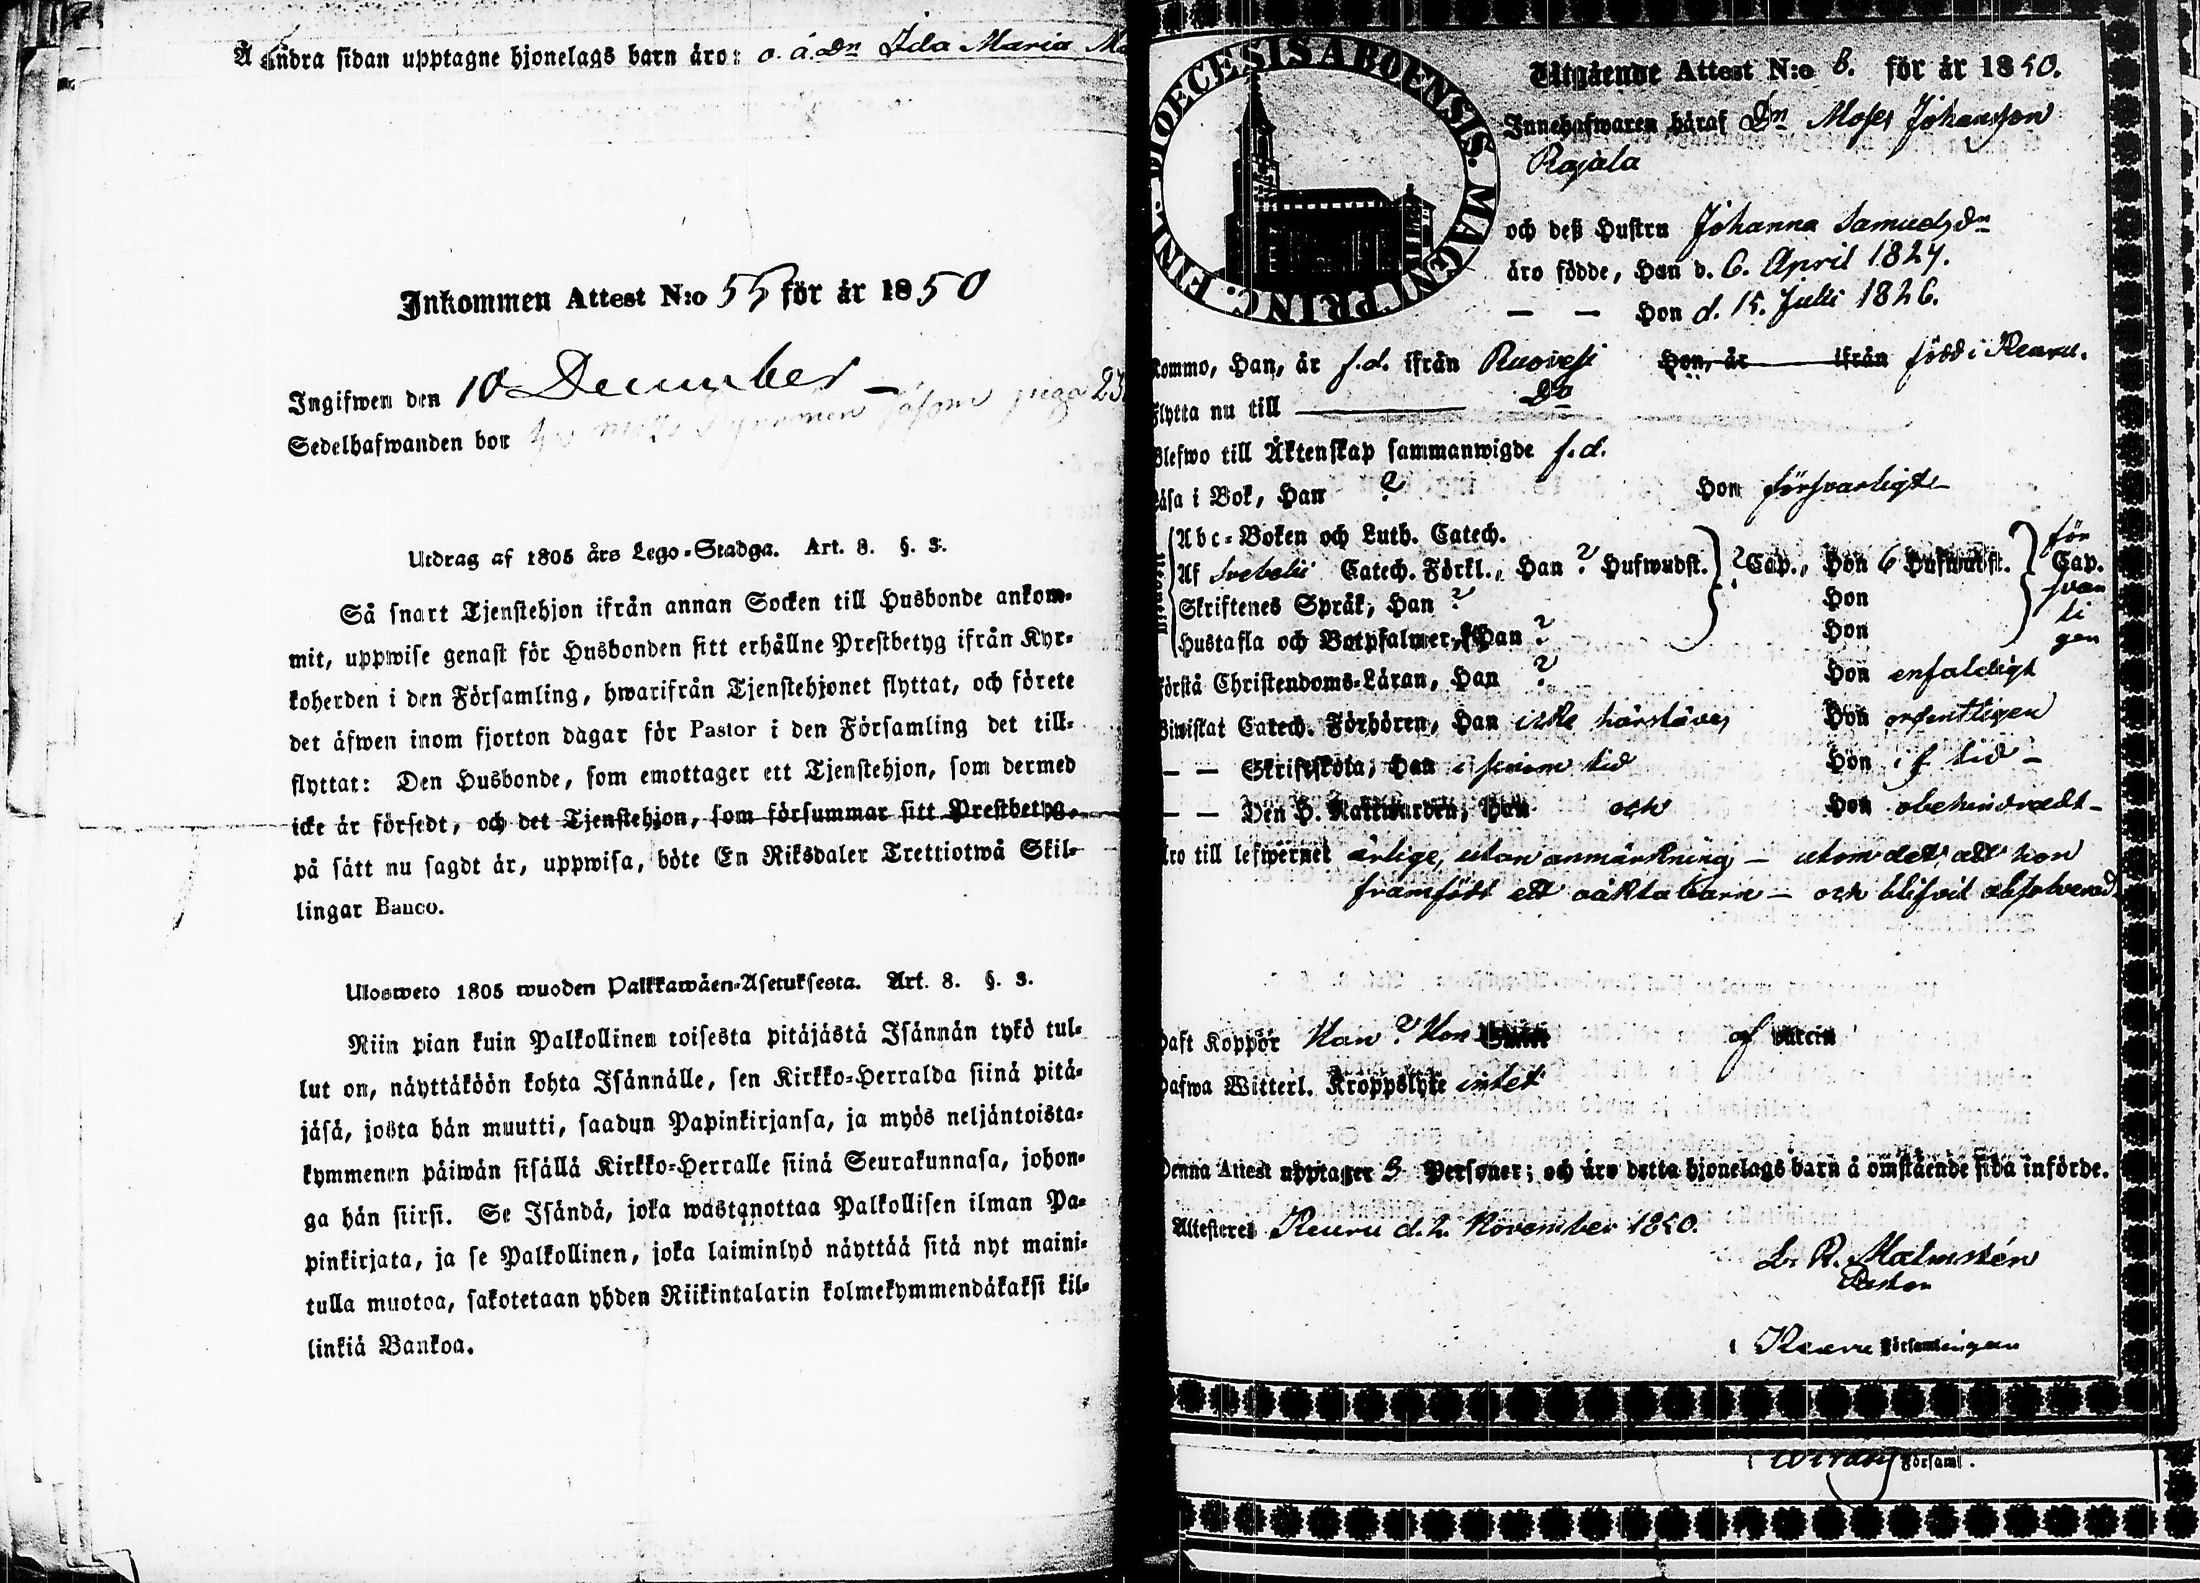 Å andra sidan upptagne hjonelags barn äro: o. ä. dn Ida Maria
Inkommen Attest N:o 55 för år 1850
Ingifwen den 10 December –
Sedelhafwanden bor såsom piga
Utdrag af 1805 års Lego-Stadga. Art. 8. §. 3.
Så snart Tjenstehjon ifrån annan Socken till Husbonde ankom-
mit, uppwise genast för Husbonden sitt erhållne Prestbetyg ifrån Kyr-
koherden i den Församling, hwarifrån Tjenstehjonet flyttat, och förete
det äfwen inom fjorton dagar för Pastor i den Församling det till-
flyttat: Den Husbonde, som emottager ett Tjenstehjon, som dermed
icke är försedt, och det Tjenstehjon, som försummar sitt Prestbetyg,
på sätt nu sagdt är, uppwisa, böte En Riksdaler Trettiotwå Skil-
lingar Banco.
Ulosweto 1805 wuoden Palkkawäen-Asetuksesta. Art. 8. §. 3.
Niin pian kuin Palkollinen toisesta pitäjästä Isännän tykö tul-
lut on, näyttäköön kohta Isännälle, sen Kirkko-Herralda siinä pitä-
jäsä, josta hän muutti, saadun Papinkirjansa, ja myös neljäntoista-
kymmenen päiwän sisällä Kirkko-Herralle siinä Seurakunnasa, johon-
ga hän siirsi. Se Isändä, joka wastanottaa Palkollisen ilman Pa-
pinkirjata, ja se Palkollinen, joka laiminlyö näyttää sitä nyt maini-
tulla muotoa, sakotetaan yhden Riikintalarin kolmekymmendäkaksi kil-
linkiä Bankoa.
DIOECESIS ABOENSIS. MAGNI PRINC. FINL.
Utgående Attest N:o 8. för år 1850.
Innehafwaren häraf Dn Moses Johansson
Rajala
och deß Hustru Johanna Samuelsdn
äro födde, Han d. 6. April 1824.
— — Hon d. 15. Julii 1826.
Kommo, Han, år f.d. ifrån Ruovesi Hon, år ifrån född i Keuru.
Flytta nu till Do
Blefwo till Äktenskap sammanwigde f.d.
Läsa i Bok, Han ? Hon försvarligt
Abc-Boken och Luth. Catech. för
Af Svebelii Catech. Förkl., Han ? Hufwudst. ? Cap., Hon 6 Hufwudst. Cap.
Skriftenes Språk, Han ? Hon svar
Hustafla och Botpsalmer, Han ? Hon ti
gen
Förstå Christendoms-Läran, Han ? Hon enfaldigt
Biwistat Catech. Förhören, Han icke härstädes Hon ordentligen
— — Skriftskola, Han i sinom tid Hon i s. tid –
— — Den H. Nattwarden, Han och Hon obehindradt –
Äro till lefwernet ärlige, utan anmärkning – utom det att hon
framfödt ett oäkta barn – och blifvit absolverad
Haft Koppor Han ? Hon af
Hafwa Witterl. Kroppslyte intet
Denna Attest upptager 3 Personer; och äro detta hjonelags barn å omstående sida införde.
Attesteres Keuru d. 2. November 1850.
Malmstén
Pastor
i Keuru Församlingen
Församl.